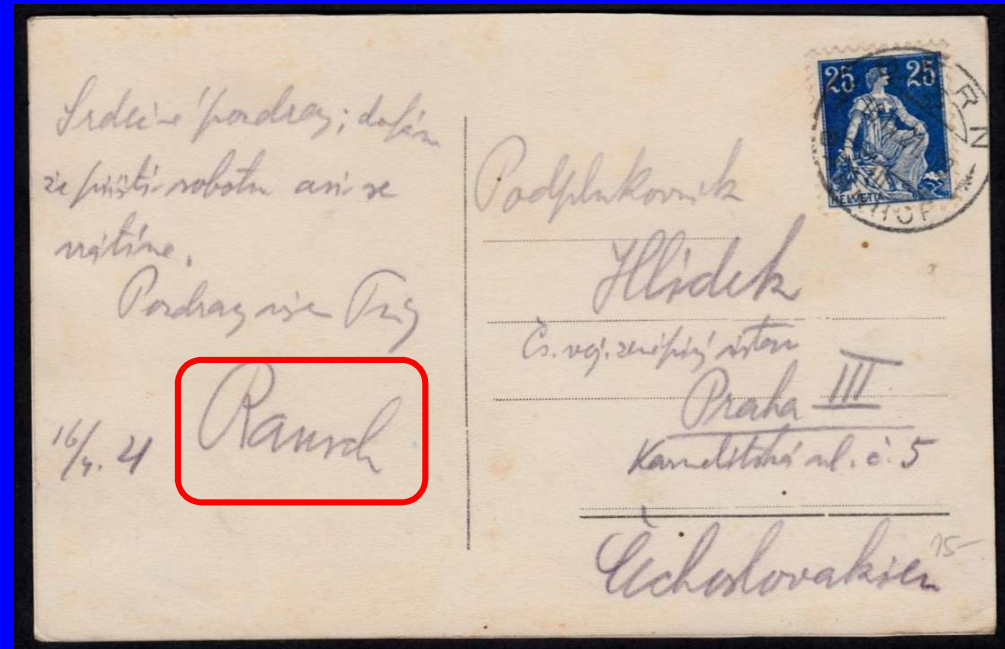 Srdečné pozdravy; doufám
že příští sobotu asi se
vrátíme.
Pozdravuje
Rausch
16/4. 21
25 25
HELVETIA
Podplukovník
Hlídek
Čs. voj. zeměpisný ústav
Praha III
Karmelitská ul. č. 5
Čechoslovakien
15-